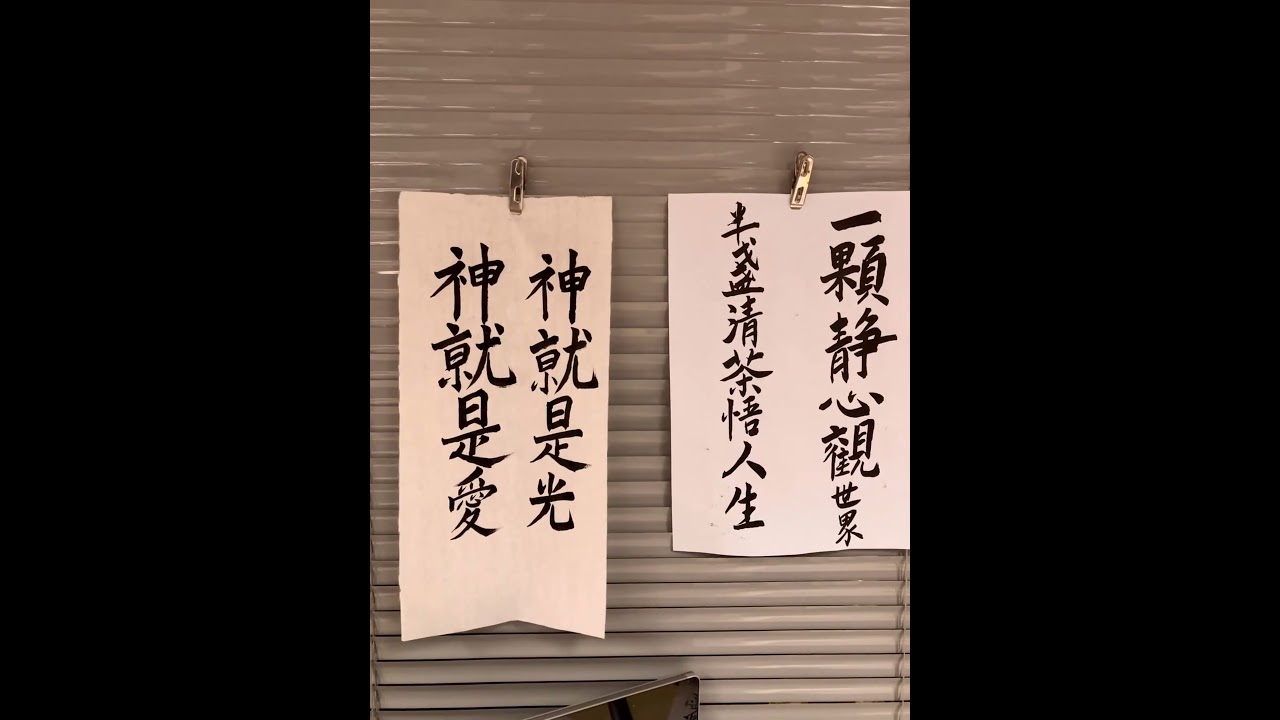 一顆静心觀世界
半盞清茶悟人生
神就是光
神就是愛